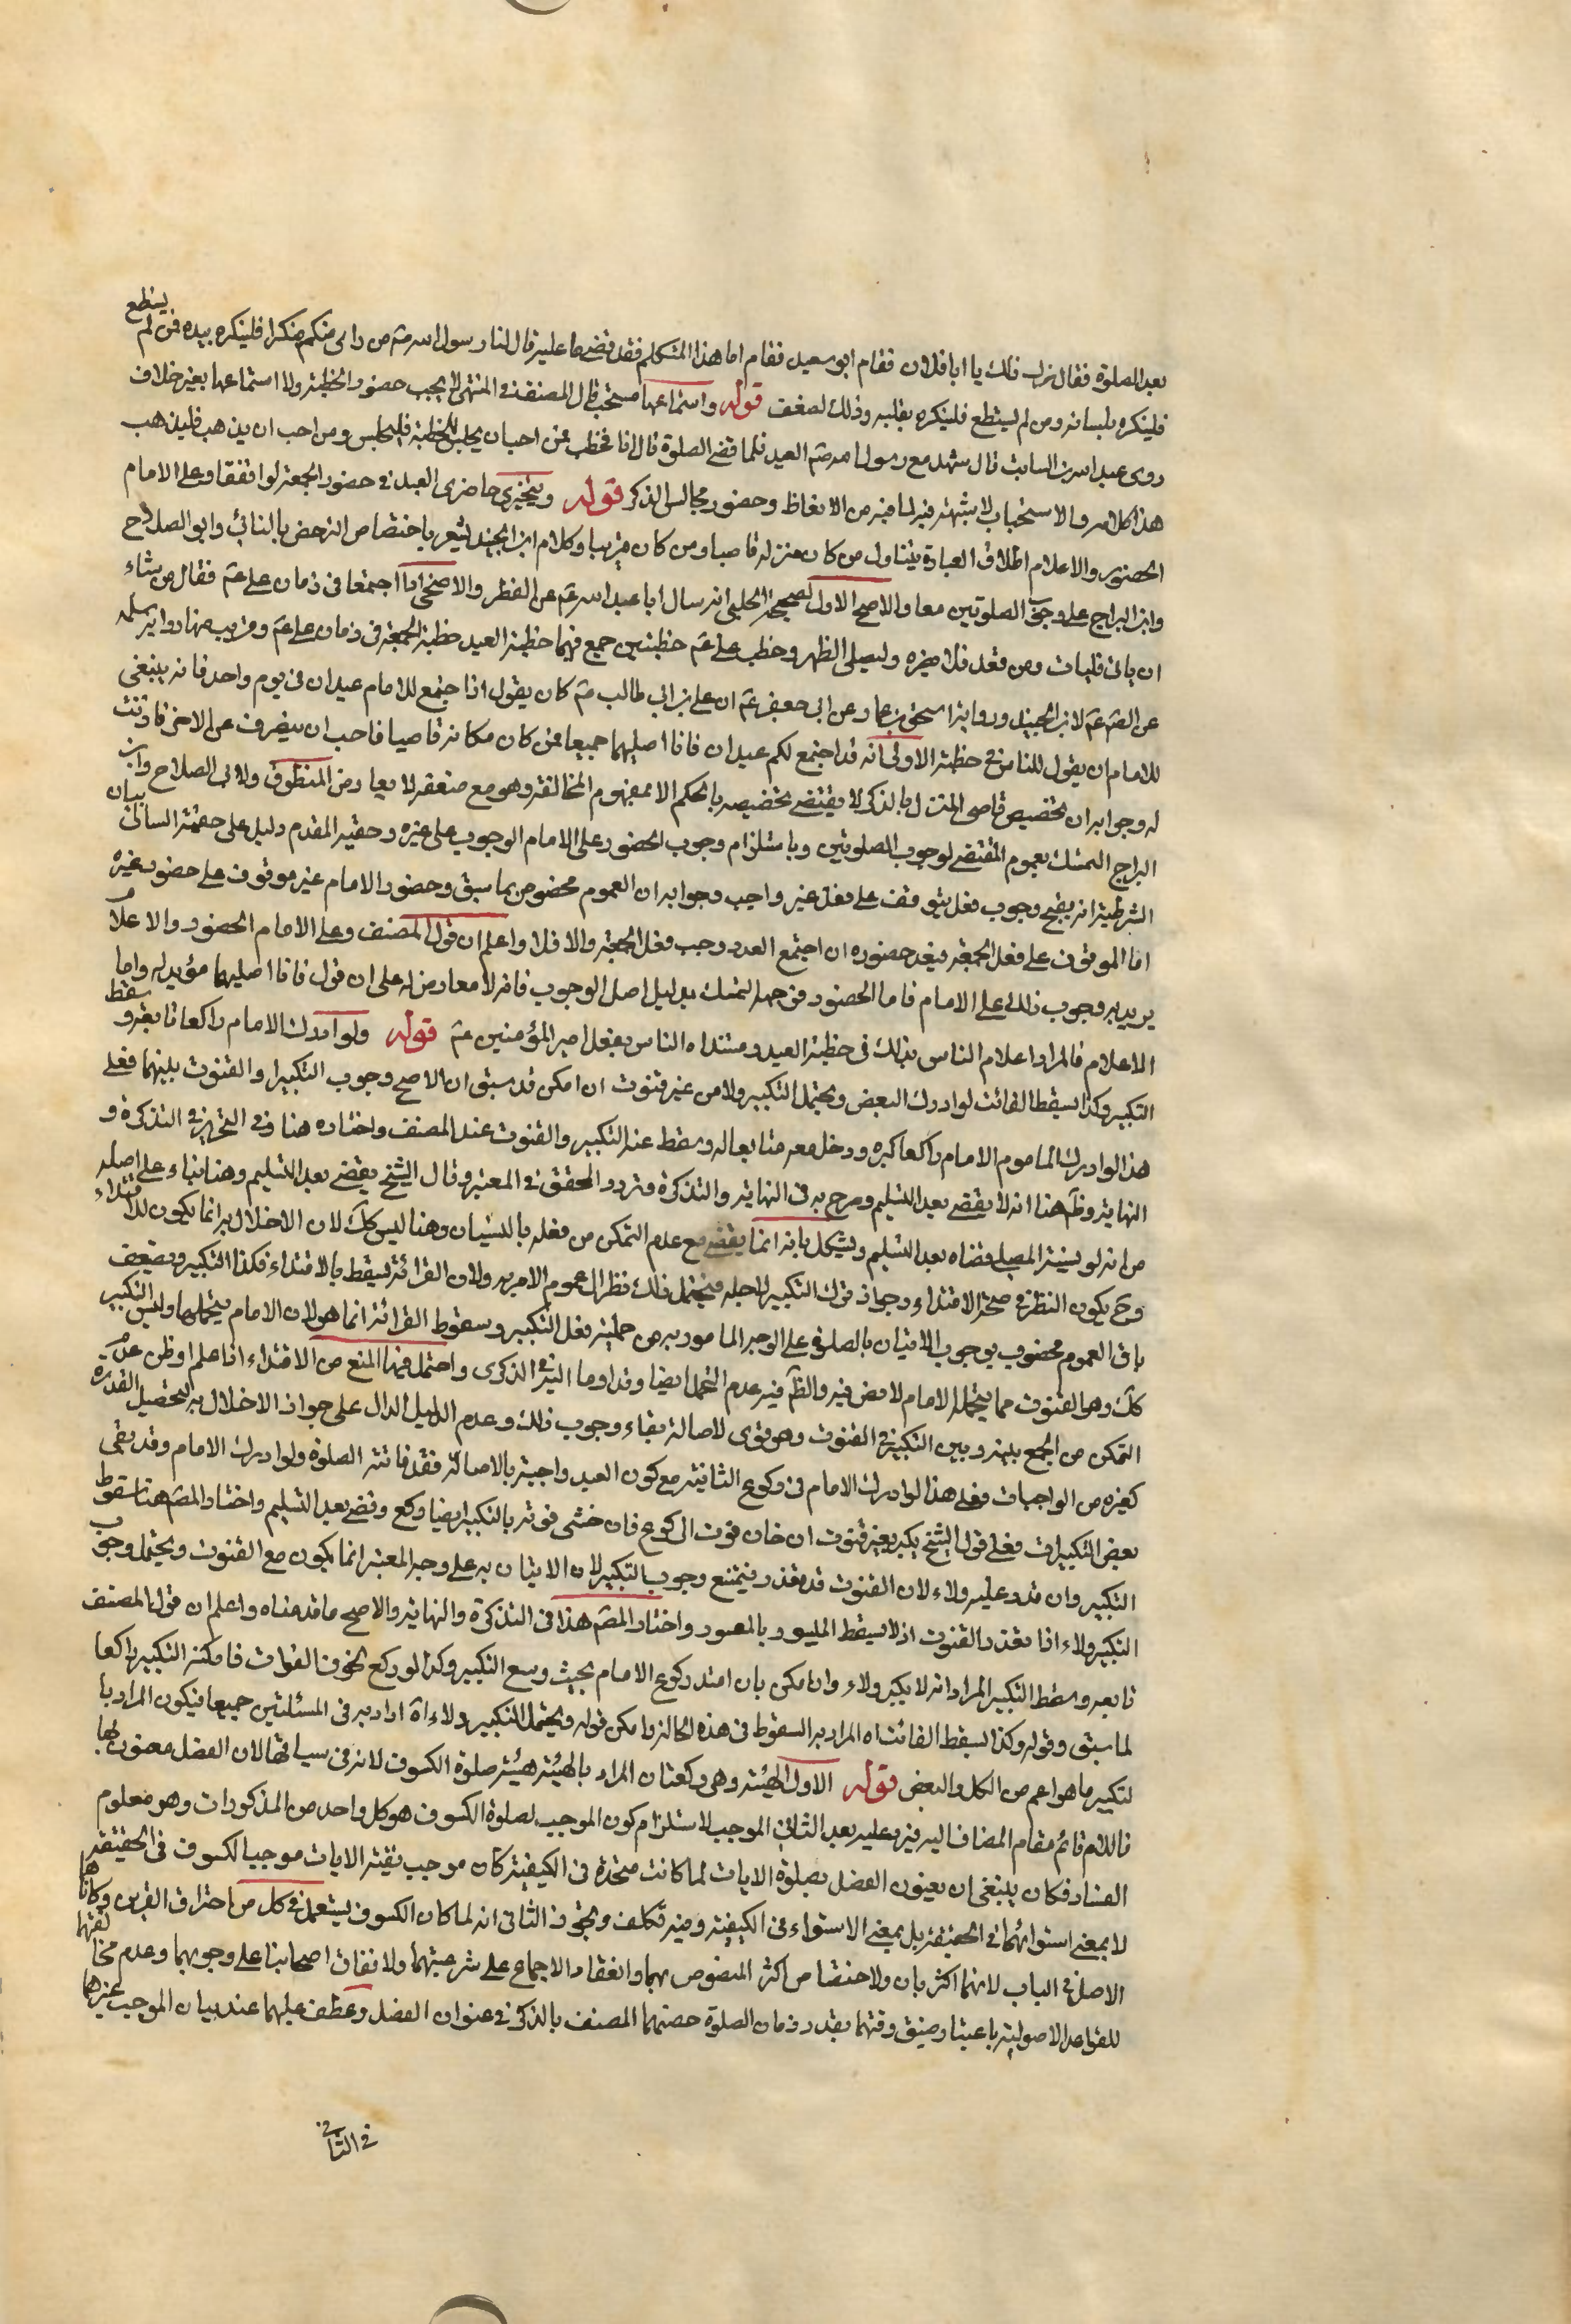 بعد الصلوة فقال ترك ذلك يا ابا فلان فقام ابو سعيد فقام اما هذا المتكلم فقد قضى ما عليه قال لنا رسول الله ص من راى منكم منكرا فلينكره بيده فمن لم يستطع
فلينكره بلسانه ومن لم يستطع فلينكره بقلبه وذلك لضعف قوله واستماعها مستحب قال المصنف في المنتهى لا يجب حضور الخطبة ولا استماعها بغير خلاف
روى عبد الله بن السائب قال شهد مع رسول الله ص العيد فلما قضى الصلوة قال انا نخطب فمن احب ان يجلس للخطبة فليجلس ومن احب ان يذهب فليذهب
هذا كلامه والاستحباب لا شبهة فيه لما فيه من الاتعاظ وحضور مجالس الذكر قوله ويتخير حاضرى العيد في حضور الجمعة لو اتفقا وعلى الامام
الحضور والاعلام اطلاق العبادة يتناول من كان منزله قاصيا ومن كان قريبا وكلام ابن الجنيد يشعر باختصاص الترخص بالنائى وابو الصلاح
وابن البراج على وجوب الصلوتين معا والاصح الاول لصحيحة الحلبى انه سال ابا عبد الله ع عن الفطر والاضحى اذا اجتمعا في زمان على ع فقال من شاء
ان ياتى فليات ومن قعد فلا يضره وليصلى الظهر وخطب على ع خطبتين جمع فيهما خطبة العيد خطبة الجمعة في زمان على ع وقريب منها رواية سلمه
عن الص ع لابن الجنيد ورواية اسحق بن عمار عن ابى جعفر ع ان على بن ابى طالب ع كان يقول اذا اجتمع للامام عيدان في يوم واحد فانه ينبغى
للامام ان يقول للناس في خطبته الاولى انه قد اجتمع لكم عيدان فانا اصليهما جميعا فمن كان مكانه قاصيا فاحب ان ينصرف عن الاخر فقد اذنت
له وجوابه ان تخصيص قاصى المنزل بالذكر لا يقتضى تخصيصه بالحكم الا بمفهوم المخالفة وهو مع ضعفه لا يعارض المنطوق ولابى الصلاح وابن
البراج التمسك بعموم المقتضى لوجوب الصلوتين وباستلزام وجوب الحضور على الامام الوجوب على غيره وحقية المقدم دليل على حقية التالى بيان
الشرطية انه يقبح وجوب فعل يتوقف على فعل غير واجب وجوابه ان العموم مخصوص بما سبق وحضور الامام غير موقوف على حضور غيره
انما الموقوف على فعل الجمعة فبعد حضوره ان اجتمع العدد وجب فعل الجمعة والا فلا واعلم ان قول المصنف وعلى الامام الحضور والاعلام
يريد به وجوب ذلك على الامام فاما الحضور فمن جهة التمسك بدليل اصل الوجوب فانه لا معارض له على ان قوله فانا اصليهما مؤيد له واما
الاعلام فالمراد اعلام الناس بذلك في خطبة العيد ومستنده الناس بفعل امير المؤمنين ع قوله ولو ادرك الامام راكعا تابعه وسقط
التكبير وكذا يسقط الفائت لو ادرك البعض ويحتمل التكبير ولاء من غير قنوت ان امكن قد سبق ان الاصح وجوب التكبير والقنوت بينهما فعلى
هذا لو ادرك الماموم الامام راكعا كبر ودخل معه متابعا له وسقط عنه التكبير والقنوت عند المصنف واختاره هنا وفي التحرير وفي التذكرة و
النهاية وظاهر هنا انه لا يقضى بعد التسليم وصرح به في النهاية والتذكرة وتردد المحقق في المعتبر وقال الشيخ يقضى بعد التسليم وهنا بناء على اصله
من انه لو نسيه المصلى قضاه بعد التسليم ويشكل بانه انما يقضى مع عدم التمكن من فعله بالنسيان وهنا ليس كك لان الاخلال به انما يكون للاقتداء
وح يكون النظر في صحة الاقتداء وجواز ترك التكبير لاجله فيحتمل ذلك نظرا الى عموم الامر به ولان القرائة تسقط بالاقتداء فكذا التكبير ويضعف
بان العموم مخصوص بوجوب الاتيان بالصلوة على الوجه المامور به من جملته فعل التكبير وسقوط القرائة انما هو لان الامام يتحملها وليس التكبير
كك وهو القنوت مما يتحمله الامام لا نص فيه والظ فيه عدم التحمل ايضا وقد اوما اليه في الذكرى واحتمل فيها المنع من الاقتداء اذا علم او ظن عدم
التمكن من الجمع بينه وبين التكبير والقنوت وهو قوى لاصالة بقاء وجوب ذلك وعدم الدليل الدال على جواز الاخلال به لتحصيل القدوة
كغيره من الواجبات فعلى هذا لو ادرك الامام في ركوع الثانية مع كون العيد واجبة بالاصالة فقد فاتته الصلوة ولو ادرك الامام وقد بقى
بعض التكبيرات فعلى قول الشيخ يكبر بغير قنوت ان خاف فوت الركوع فان خشى فوته بالتكبير ايضا ركع وقضى بعد التسليم واختار المص هنا سقوط
التكبير وان قدر عليه ولاء لان القنوت قد تعذر فيمتنع وجوب التكبير لان الاتيان به على وجه المعتبر انما يكون مع القنوت ويحتمل وجوب
التكبير ولاء اذا تعذر القنوت اذ لا يسقط الميسور بالمعسور واختار المص هذا في التذكرة والنهاية والاصح ما قدمناه واعلم ان قول المصنف
تابعه وسقط التكبير المراد انه لا يكبر ولاء وان امكن بان امتد ركوع الامام بحيث وسع التكبير وكذا لو ركع لخوف الفوات فامكنه التكبير راكعا
لما سبق وقوله وكذا يسقط الفائت اه المراد به السقوط في هذه الحالة وامكن قوله ويحتمل التكبير ولاء اه اراد به في المسئلتين جميعا فيكون المراد با
لتكبير ما هو اعم من الكل والبعض قوله الاول الهيئة وهى ركعتان المراد بالهيئة هيئة صلوة الكسوف لانه في سياقها لان الفصل معنون بها
فاللام قائم مقام المضاف اليه فيه وعليه بعد الثانى الموجب لاستلزام كون الموجب لصلوة الكسوف هو كل واحد من المذكورات وهو معلوم
الفساد فكان ينبغى ان يعنون الفصل بصلوة الايات لما كانت متحدة في الكيفية كان موجب بقية الايات موجبا لكسوف في الحقيقة
لا بمعنى استوائهما في الحقيقة بل بمعنى الاستواء في الكيفية وفيه تكلف ويجوز في الثانى انه لما كان الكسوف يستعمل في كل من احتراق القرين وكانا هما
الاصل في الباب لانهما اكثريان ولاختصاص اكثر النصوص بهما وانعقاد الاجماع على شرعيتهما ولاتفاق اصحابنا على وجوبهما وعدم مخالفتهما
للقواعد الاصولية باعتبار ضيق وقتهما بقدر زمان الصلوة خصهما المصنف بالذكر في عنوان الفصل وعطف عليهما عند بيان الموجب غيرهما
في الثانى